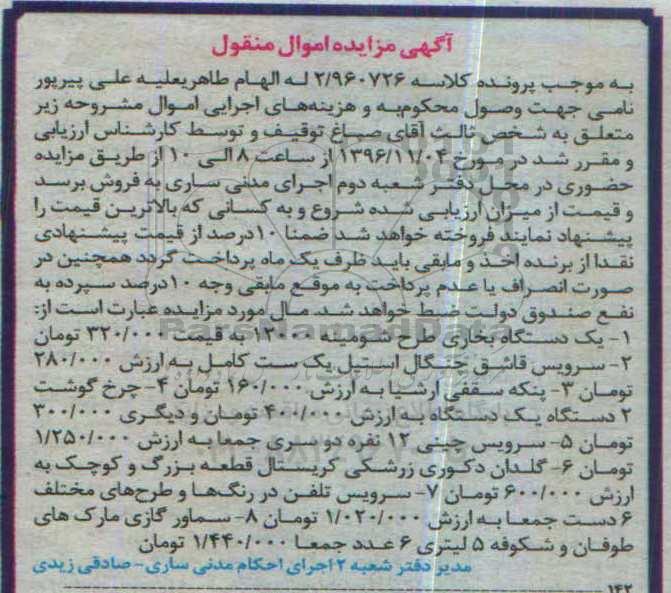 آگهی مزایده اموال منقول
به موجب پرونده کلاسه ۲/۹۶۰۷۲۶ له الهام طاهریعلیه علی پیرپور
نامی جهت وصول محکوم‌به و هزینه‌های اجرایی اموال مشروحه زیر
متعلق به شخص ثالث آقای صباغ توقیف و توسط کارشناس ارزیابی
و مقرر شد در مورخ ۱۳۹۶/۱۱/۰۴ از ساعت ۸ الی ۱۰ از طریق مزایده
حضوری در محل دفتر شعبه دوم اجرای مدنی ساری به فروش برسد
و قیمت از میزان ارزیابی شده شروع و به کسانی که بالاترین قیمت را
پیشنهاد نمایند فروخته خواهد شد ضمنا ۱۰درصد از قیمت پیشنهادی
نقدا از برنده اخذ و مابقی باید ظرف یک ماه پرداخت گردد همچنین در
صورت انصراف یا عدم پرداخت به موقع مابقی وجه ۱۰درصد سپرده به
نفع صندوق دولت ضبط خواهد شد. مال مورد مزایده عبارت است از:
۱- یک دستگاه بخاری طرح شومینه ۱۲۰۰۰ به قیمت ۳۲۰/۰۰۰ تومان
۲- سرویس قاشق چنگال استیل یک ست کامل به ارزش ۲۸۰/۰۰۰
تومان ۳- پنکه سقفی ارشیا به ارزش ۱۶۰/۰۰۰ تومان ۴- چرخ گوشت
۲ دستگاه یک دستگاه به ارزش ۴۰۰/۰۰۰ تومان و دیگری ۳۰۰/۰۰۰
تومان ۵- سرویس چینی ۱۲ نفره دو سری جمعا به ارزش ۱/۲۵۰/۰۰۰
تومان ۶- گلدان دکوری زرشکی کریستال قطعه بزرگ و کوچک به
ارزش ۶۰۰/۰۰۰ تومان ۷- سرویس تلفن در رنگ‌ها و طرح‌های مختلف
۶ دست جمعا به ارزش ۱/۰۲۰/۰۰۰ تومان ۸- سماور گازی مارک های
طوفان و شکوفه ۵ لیتری ۶ عدد جمعا ۱/۴۴۰/۰۰۰ تومان
مدیر دفتر شعبه ۲ اجرای احکام مدنی ساری- صادقی زیدی
۱۴۲
ParsNamadData